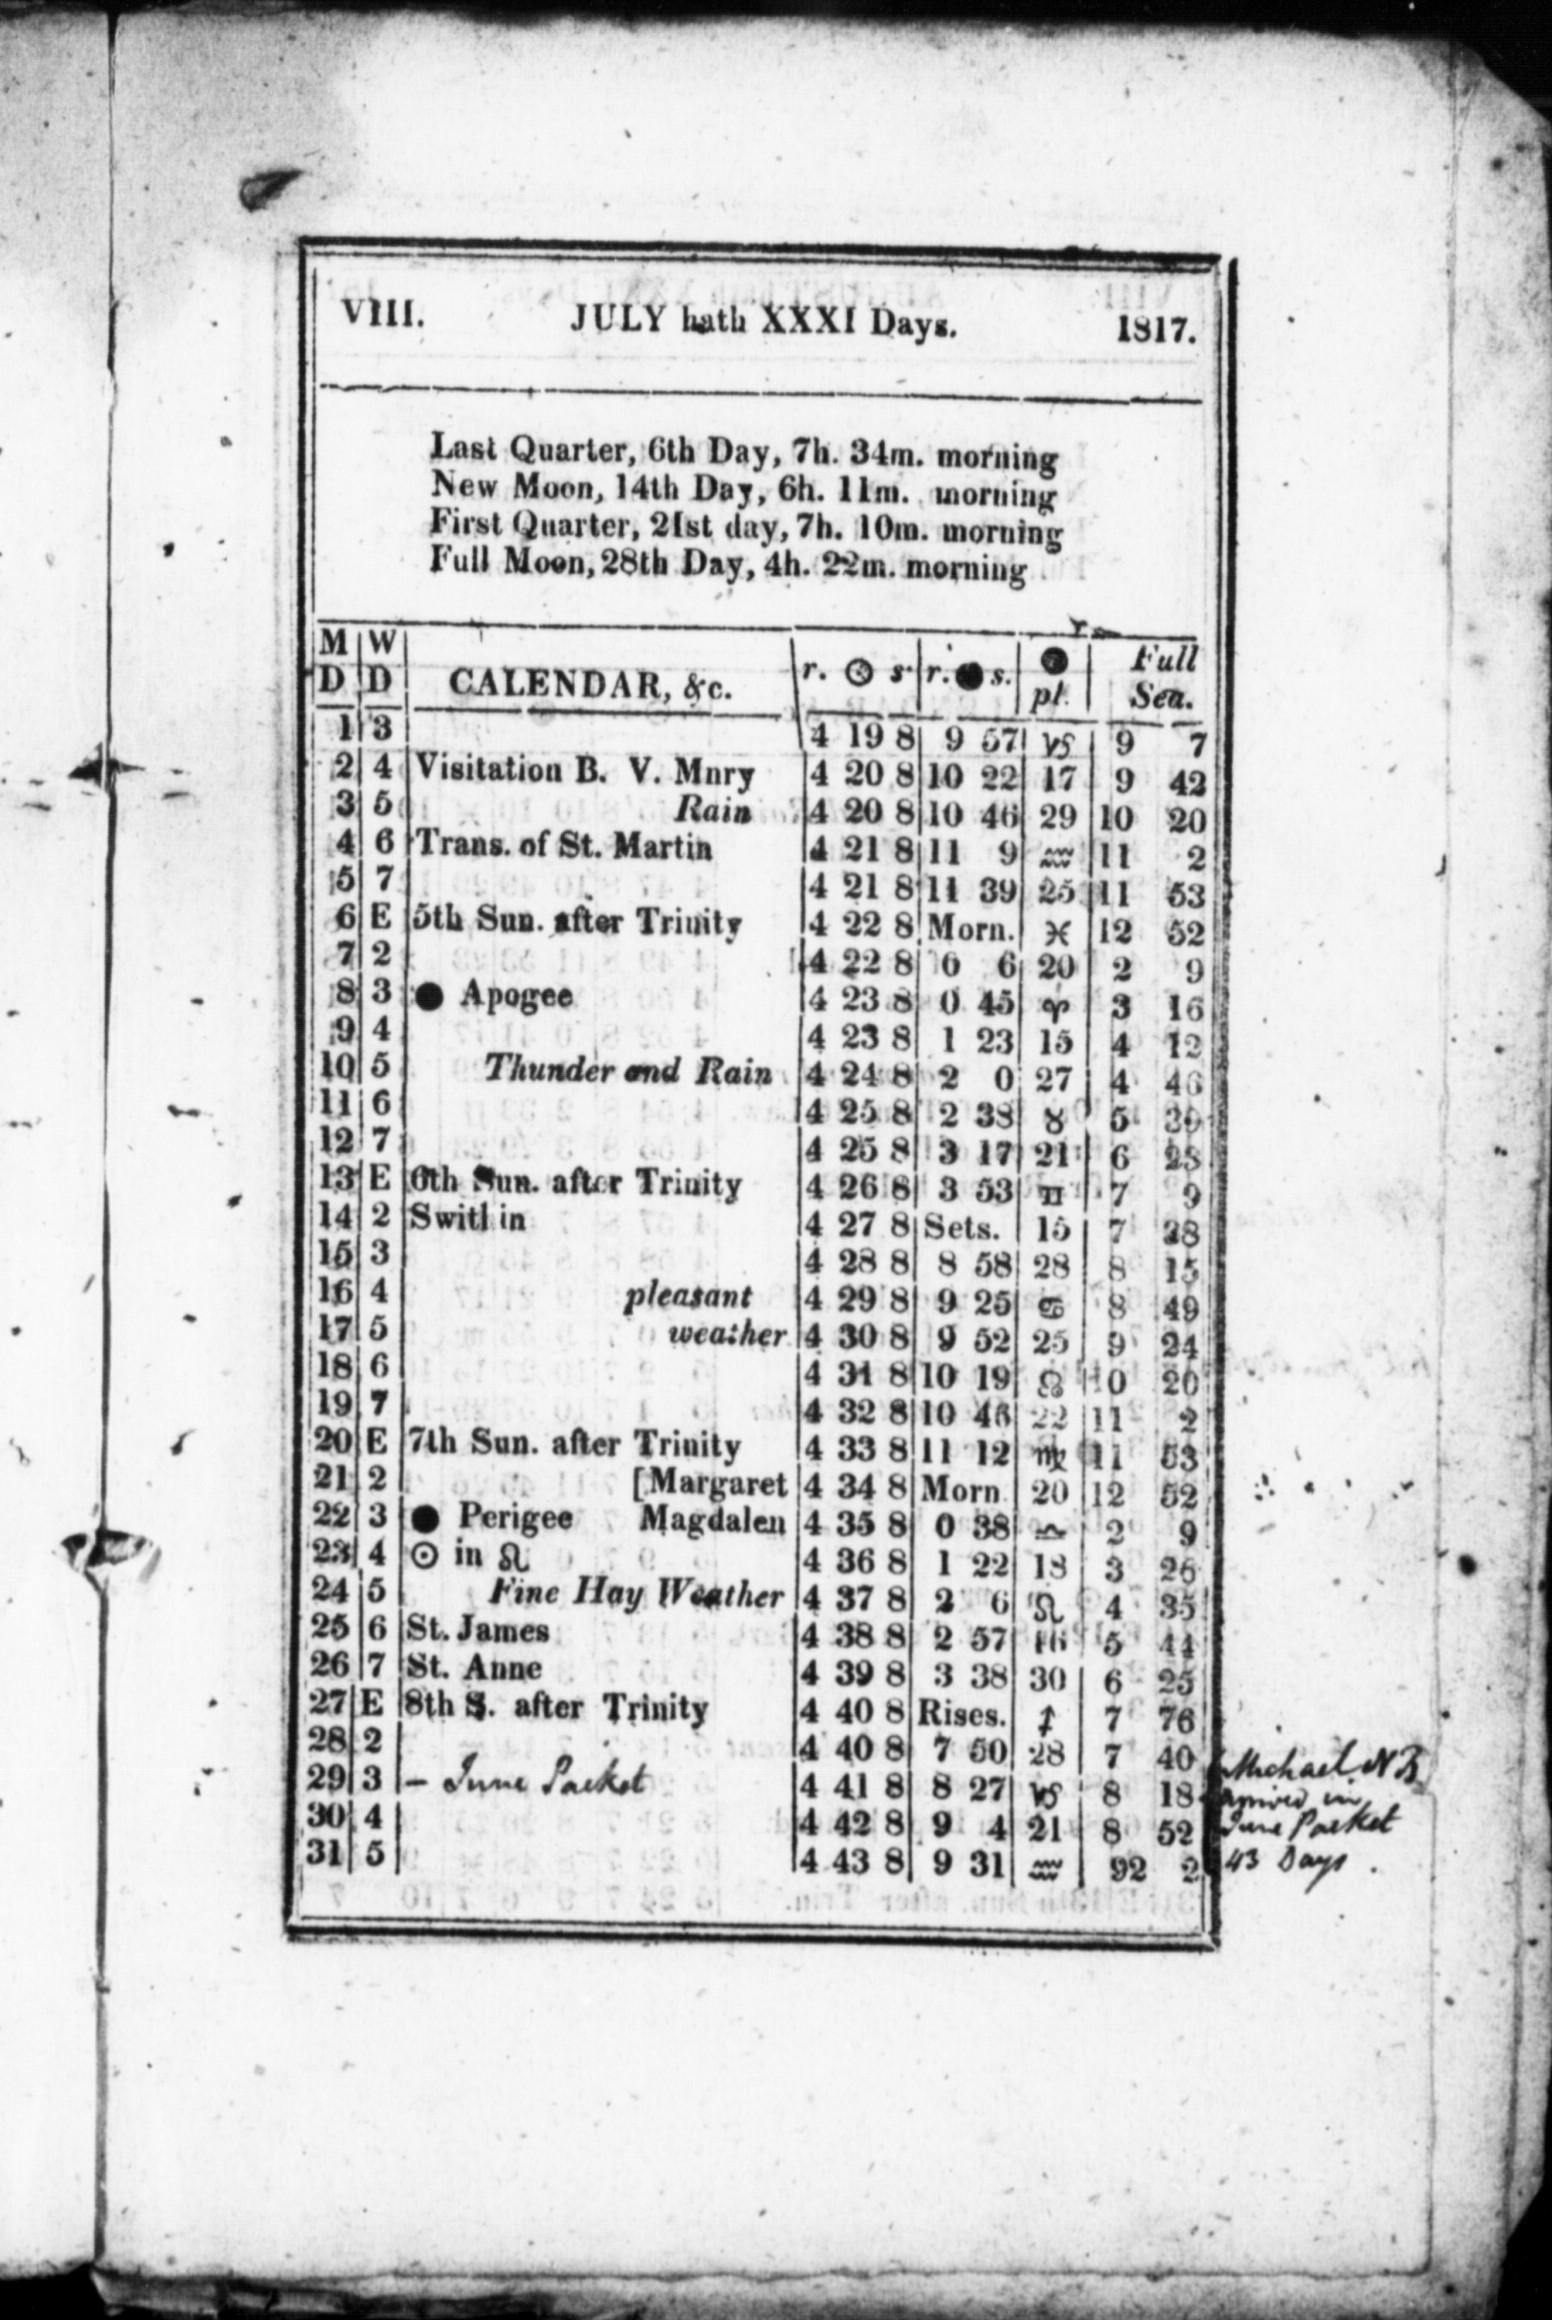 VIII. JULY hath XXXI Days. 1817.
Last Quarter, 6th Day, 7h. 34m. morning
New Moon, 14th Day, 6h. 11m. morning
First Quarter, 21st day, 7h. 10m. morning
Full Moon, 28th Day, 4h. 22m. morning
M D W D CALENDAR, &c. r. ☉ s. r. ● s. ● pl. Full Sea.
1 3 4 19 8 9 57 ♑ 9 7
2 4 Visitation B. V. Mnry 4 20 8 10 22 17 9 42
3 5 Rain 4 20 8 10 46 29 10 20
4 6 Trans. of St. Martin 4 21 8 11 9 ♒ 11 2
5 7 4 21 8 11 39 25 11 53
6 E 5th Sun. after Trinity 4 22 8 Morn. ♓ 12 52
7 2 4 22 8 0 6 20 2 9
8 3 ● Apogee 4 23 8 0 45 ♈ 3 16
9 4 4 23 8 1 23 15 4 12
10 5 Thunder and Rain 4 24 8 2 0 27 4 46
11 6 4 25 8 2 38 ♉ 5 30
12 7 4 25 8 3 17 21 6 28
13 E 6th Sun. after Trinity 4 26 8 3 53 ♊ 7 9
14 2 Swithin 4 27 8 Sets. 15 7 38
15 3 4 28 8 8 58 28 8 15
16 4 pleasant 4 29 8 9 25 ♋ 8 49
17 5 weather 4 30 8 9 52 25 9 24
18 6 4 31 8 10 19 ☊ 10 20
19 7 4 32 8 10 46 22 11 2
20 E 7th Sun. after Trinity 4 33 8 11 12 ♍ 11 53
21 2 [Margaret 4 34 8 Morn 20 12 52
22 3 ● Perigee Magdalen 4 35 8 0 38 ♎ 2 9
23 4 ☉ in ♌ 4 36 8 1 22 18 3 26
24 5 Fine Hay Weather 4 37 8 2 6 ♌ 4 35
25 6 St. James 4 38 8 2 57 16 5 44
26 7 St. Anne 4 39 8 3 38 30 6 25
27 E 8th S. after Trinity 4 40 8 Rises. ♐ 7 76
28 2 4 40 8 7 50 28 7 40
29 3 – June Packet 4 41 8 8 27 ♑ 8 18
30 4 4 42 8 9 4 21 8 52
31 5 4 43 8 9 31 ♒ 92 2
Michael N B
arrived in
June Packet
43 Days.